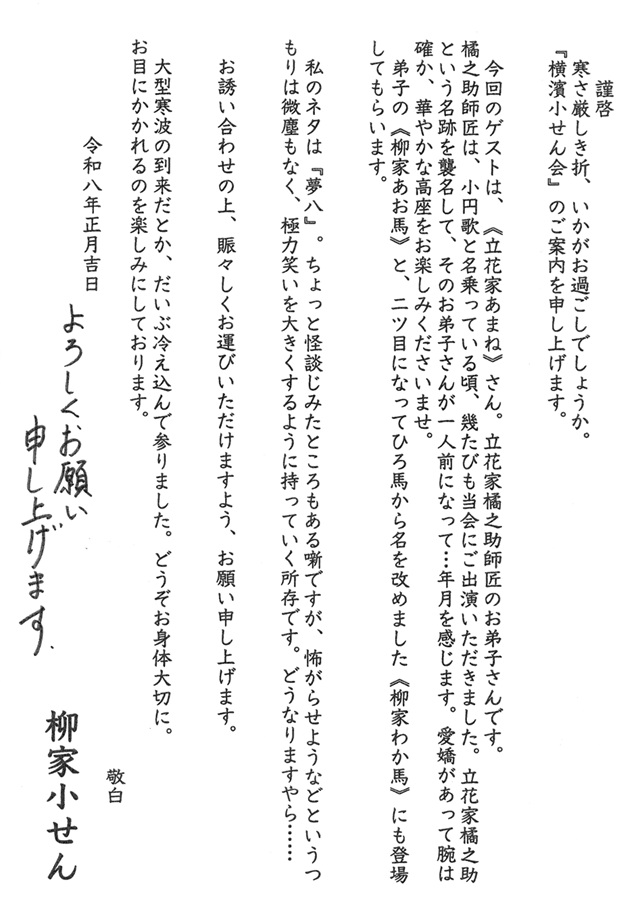 謹啓
寒さ厳しき折、いかがお過ごしでしょうか。
『横濱小せん会』のご案内を申し上げます。
今回のゲストは、《立花家あまね》さん。立花家橘之助師匠のお弟子さんです。
橘之助師匠は、小円歌と名乗っている頃、幾たびも当会にご出演いただきました。立花家橘之助
という名跡を襲名して、そのお弟子さんが一人前になって…年月を感じます。愛嬌があって腕は
確か、華やかな高座をお楽しみくださいませ。
弟子の《柳家あお馬》と、二ツ目になってひろ馬から名を改めました《柳家わか馬》にも登場
してもらいます。
私のネタは『夢八』。ちょっと怪談じみたところもある噺ですが、怖がらせようなどというつ
もりは微塵もなく、極力笑いを大きくするように持っていく所存です。どうなりますやら……
お誘い合わせの上、賑々しくお運びいただけますよう、お願い申し上げます。
大型寒波の到来だとか、だいぶ冷え込んで参りました。どうぞお身体大切に。
お目にかかれるのを楽しみにしております。
敬白
令和八年正月吉日
よろしくお願い
申し上げます.
柳家小せん